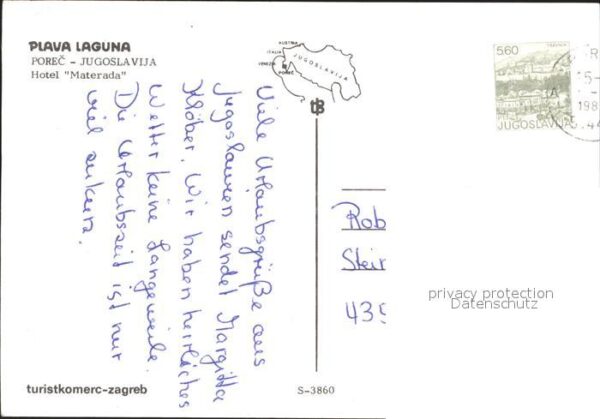 PLAVA LAGUNA
POREČ - JUGOSLAVIJA
Hotel "Materada"
AUSTRIA
ITALIA
VENEZIA
POREČ
JUGOSLAVIJA
tB
5.60
TRAVNIK
JUGOSLAVIJA
198
Viele Urlaubsgrüße aus
Jugoslawien sendet Margitta
Klöber. Wir haben herrliches
Wetter keine Langeweile.
Die Urlaubszeit ist nur
viel zu kurz.
Rob
Stein
435
privacy protection
Datenschutz
turistkomerc-zagreb
S-3860